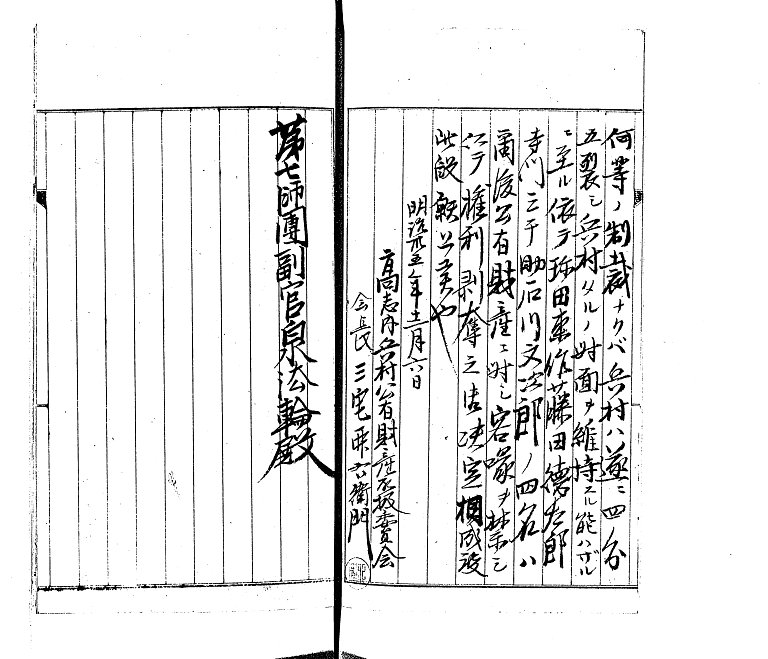 何等ノ制裁ナクバ兵村ハ遂ニ四分
五裂シ兵村タルノ対面ヲ維持スル能ハザル
ニ至ル依テ 田東作藤田徳太郎
寺門三千助石川文次郎ノ四名ハ
爾後公有財産ニ対シ容喙ヲ禁シ
仍テ権利剥奪之 決定相成度
此段 候也
明治 年十二月六日
高志内兵村公有財産取扱委員会
会長三宅 右衛門
第七師團副官泉法輪殿